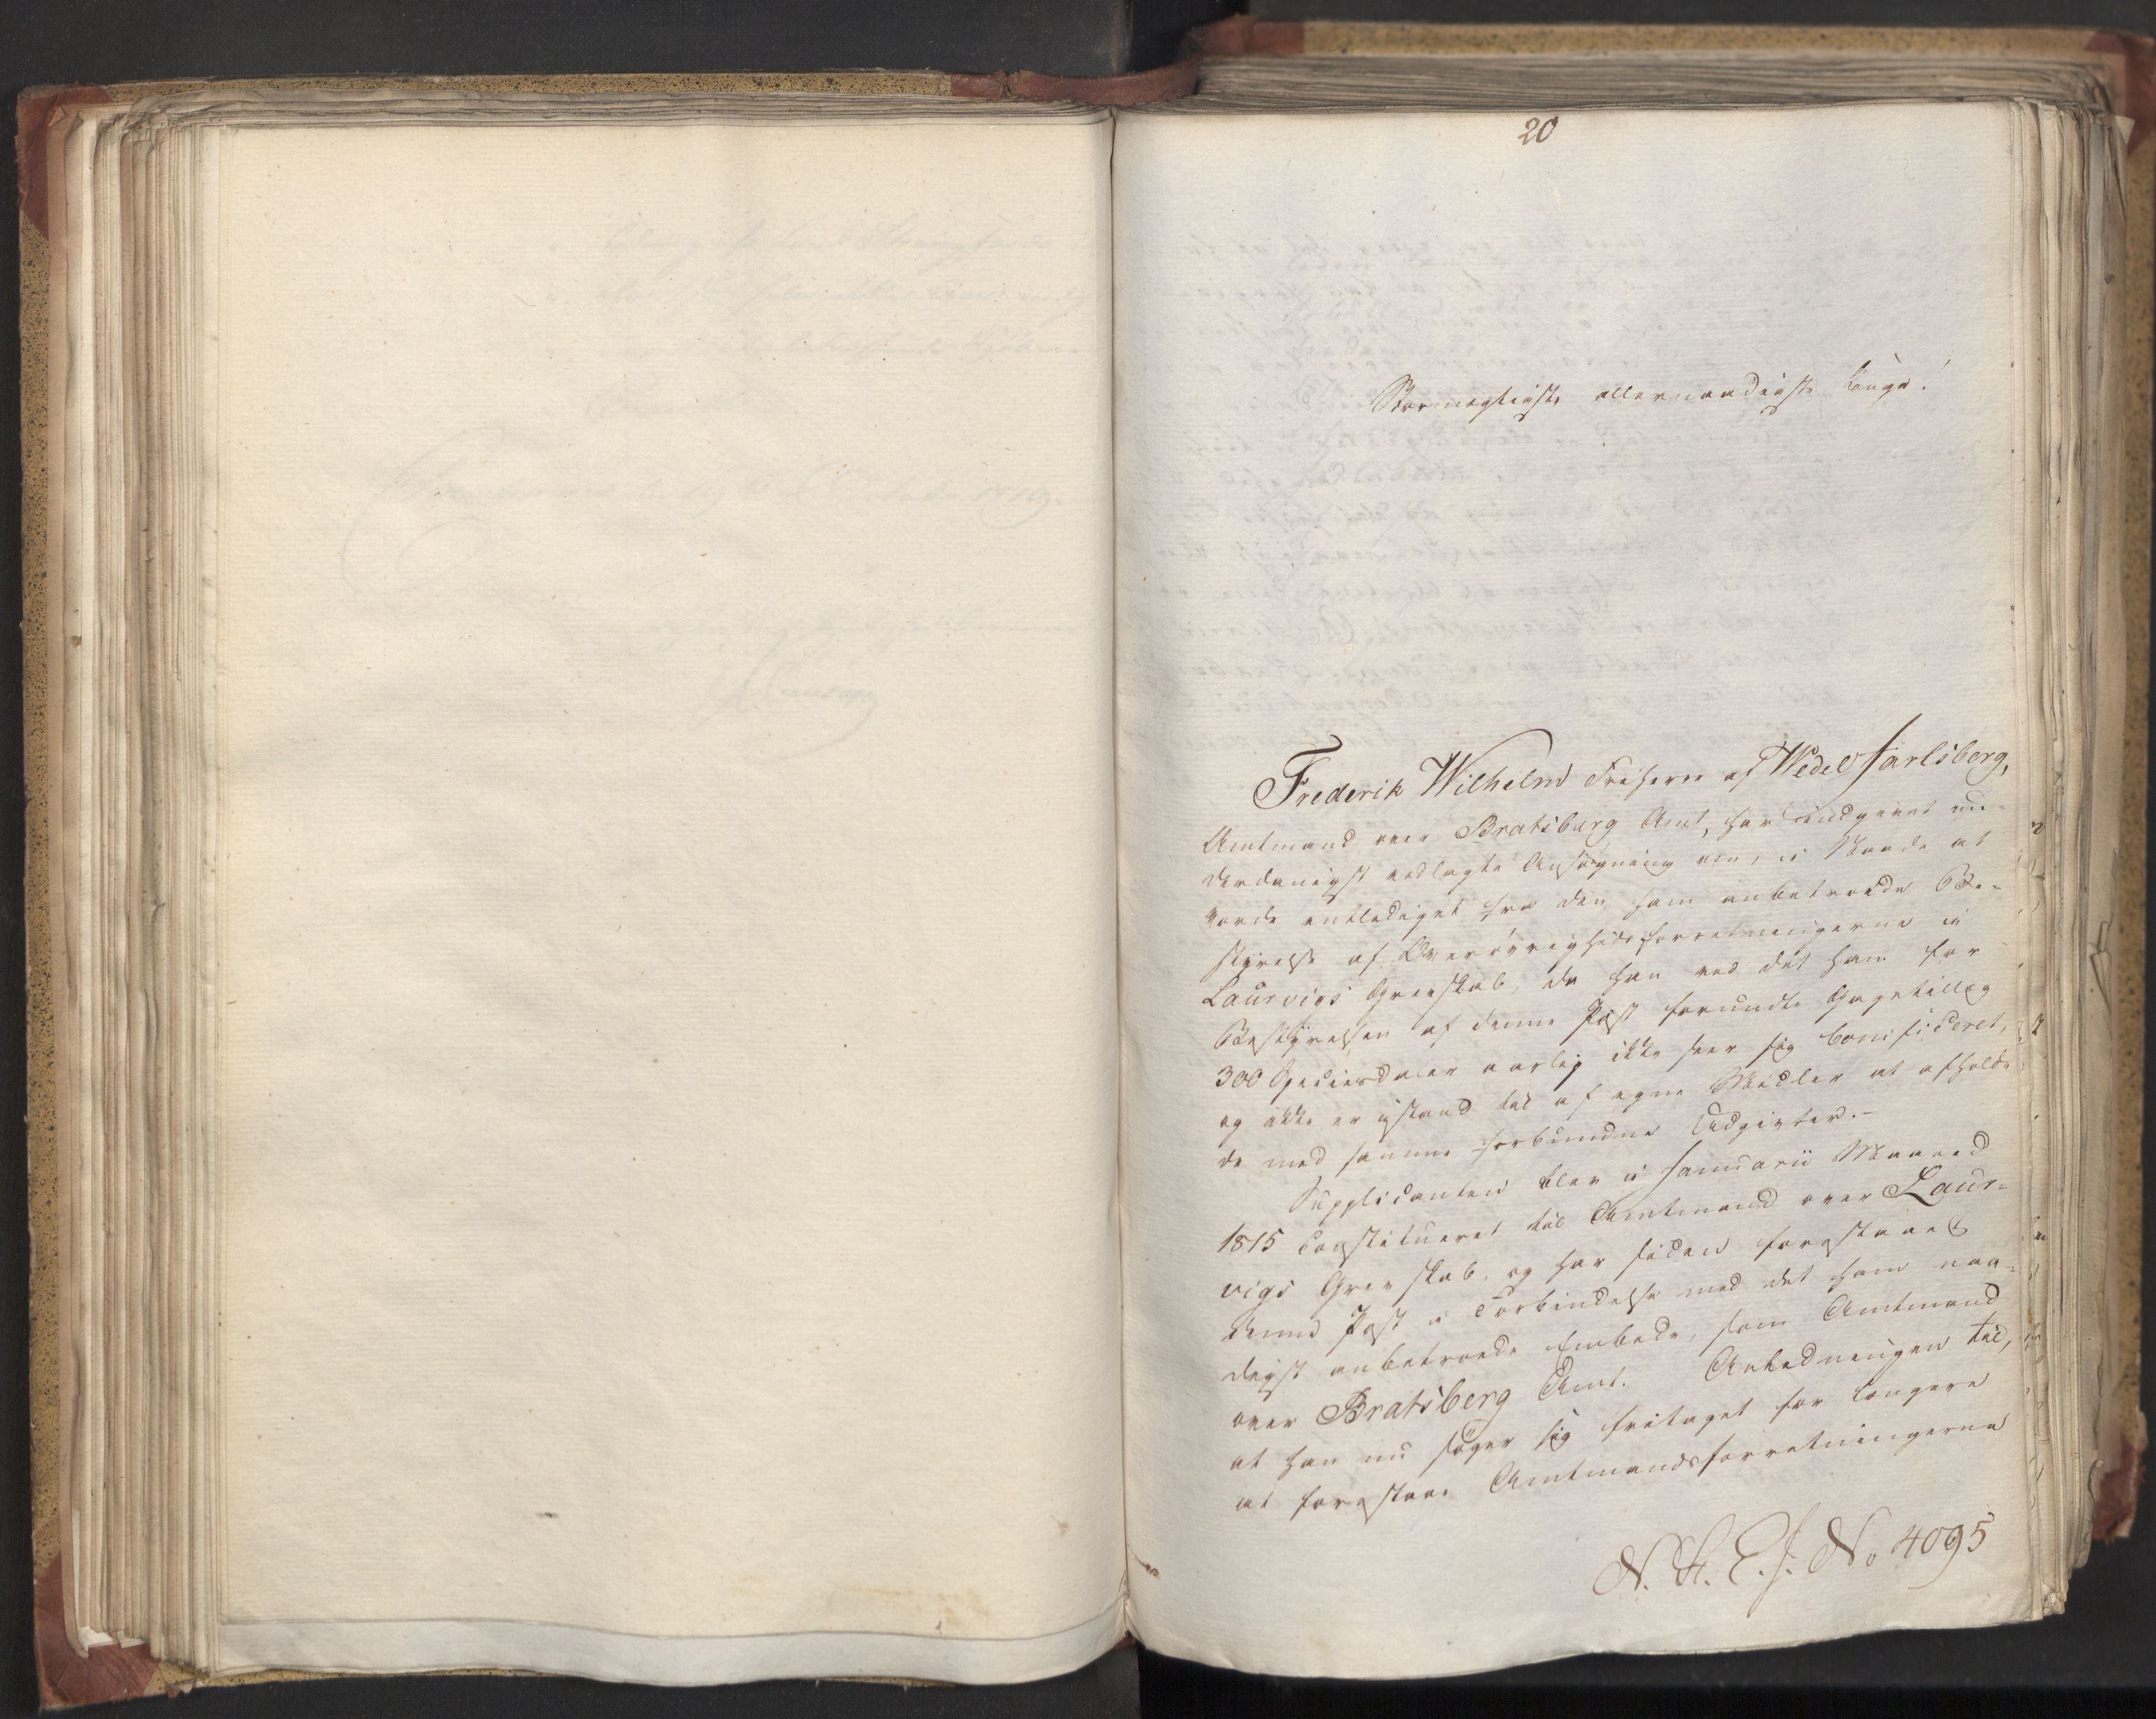 20
Stormægtigste allernaadigste Konge!
Frederik Wilhelm Friherre af Wedel Jarlsberg,
Amtmand over Bratsberg Amt, har indgivet un-
derdanigst vedlagte Ansøgning om, i Naade at
vorde entlediget fra den ham anbetroede Be-
styrelse af Overøvrighedsforretningerne i
Laurvigs Grevskab, da han ved det ham for
Bestyrelsen af denne Post forundte Gagetillæg
300 Speciesdaler aarlig ikke seer sig bonificeret,
og ikke er istand til af egne Midler at afholde
de med samme forbundne Udgivter.-
Supplicanten blev i Januarii Maaned
1815 Constitueret til Amtmand over Laur-
vigs Grevskab, og har siden forestaaet
denne Post i Forbindelse med det ham naa-
digst anbetroede Embede, som Amtmand
over Bratsberg Amt. Anledningen til,
at han nu søger sig fritaget for længere
at forestaae Amtmandsforretningerne
N. St. E. J. No 4095